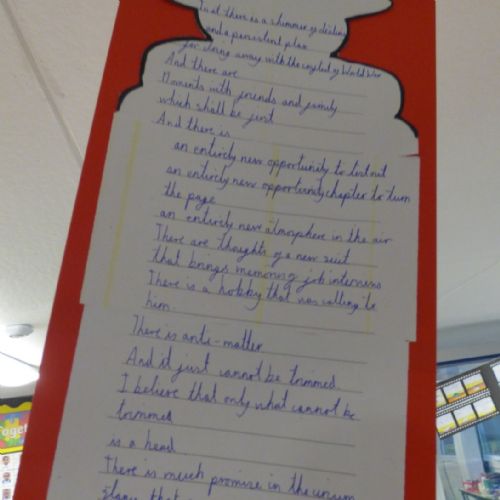 that there is a shimmer of destiny
and a persistent plan
for doing away with the
of World War
And there are
Moments with friends and family
which shall be just
And there is
an entirely new opportunity to list out
an entirely new opportunity chapter to turn
the page
an entirely new atmosphere in the air
There are thoughts of a new suit
that brings memoring job interviews
There is a hobby that was calling to
him.
There is anti-matter
And it just cannot be trimmed.
I believe that only what cannot be
trimmed
is a head
There is much promise in the
that